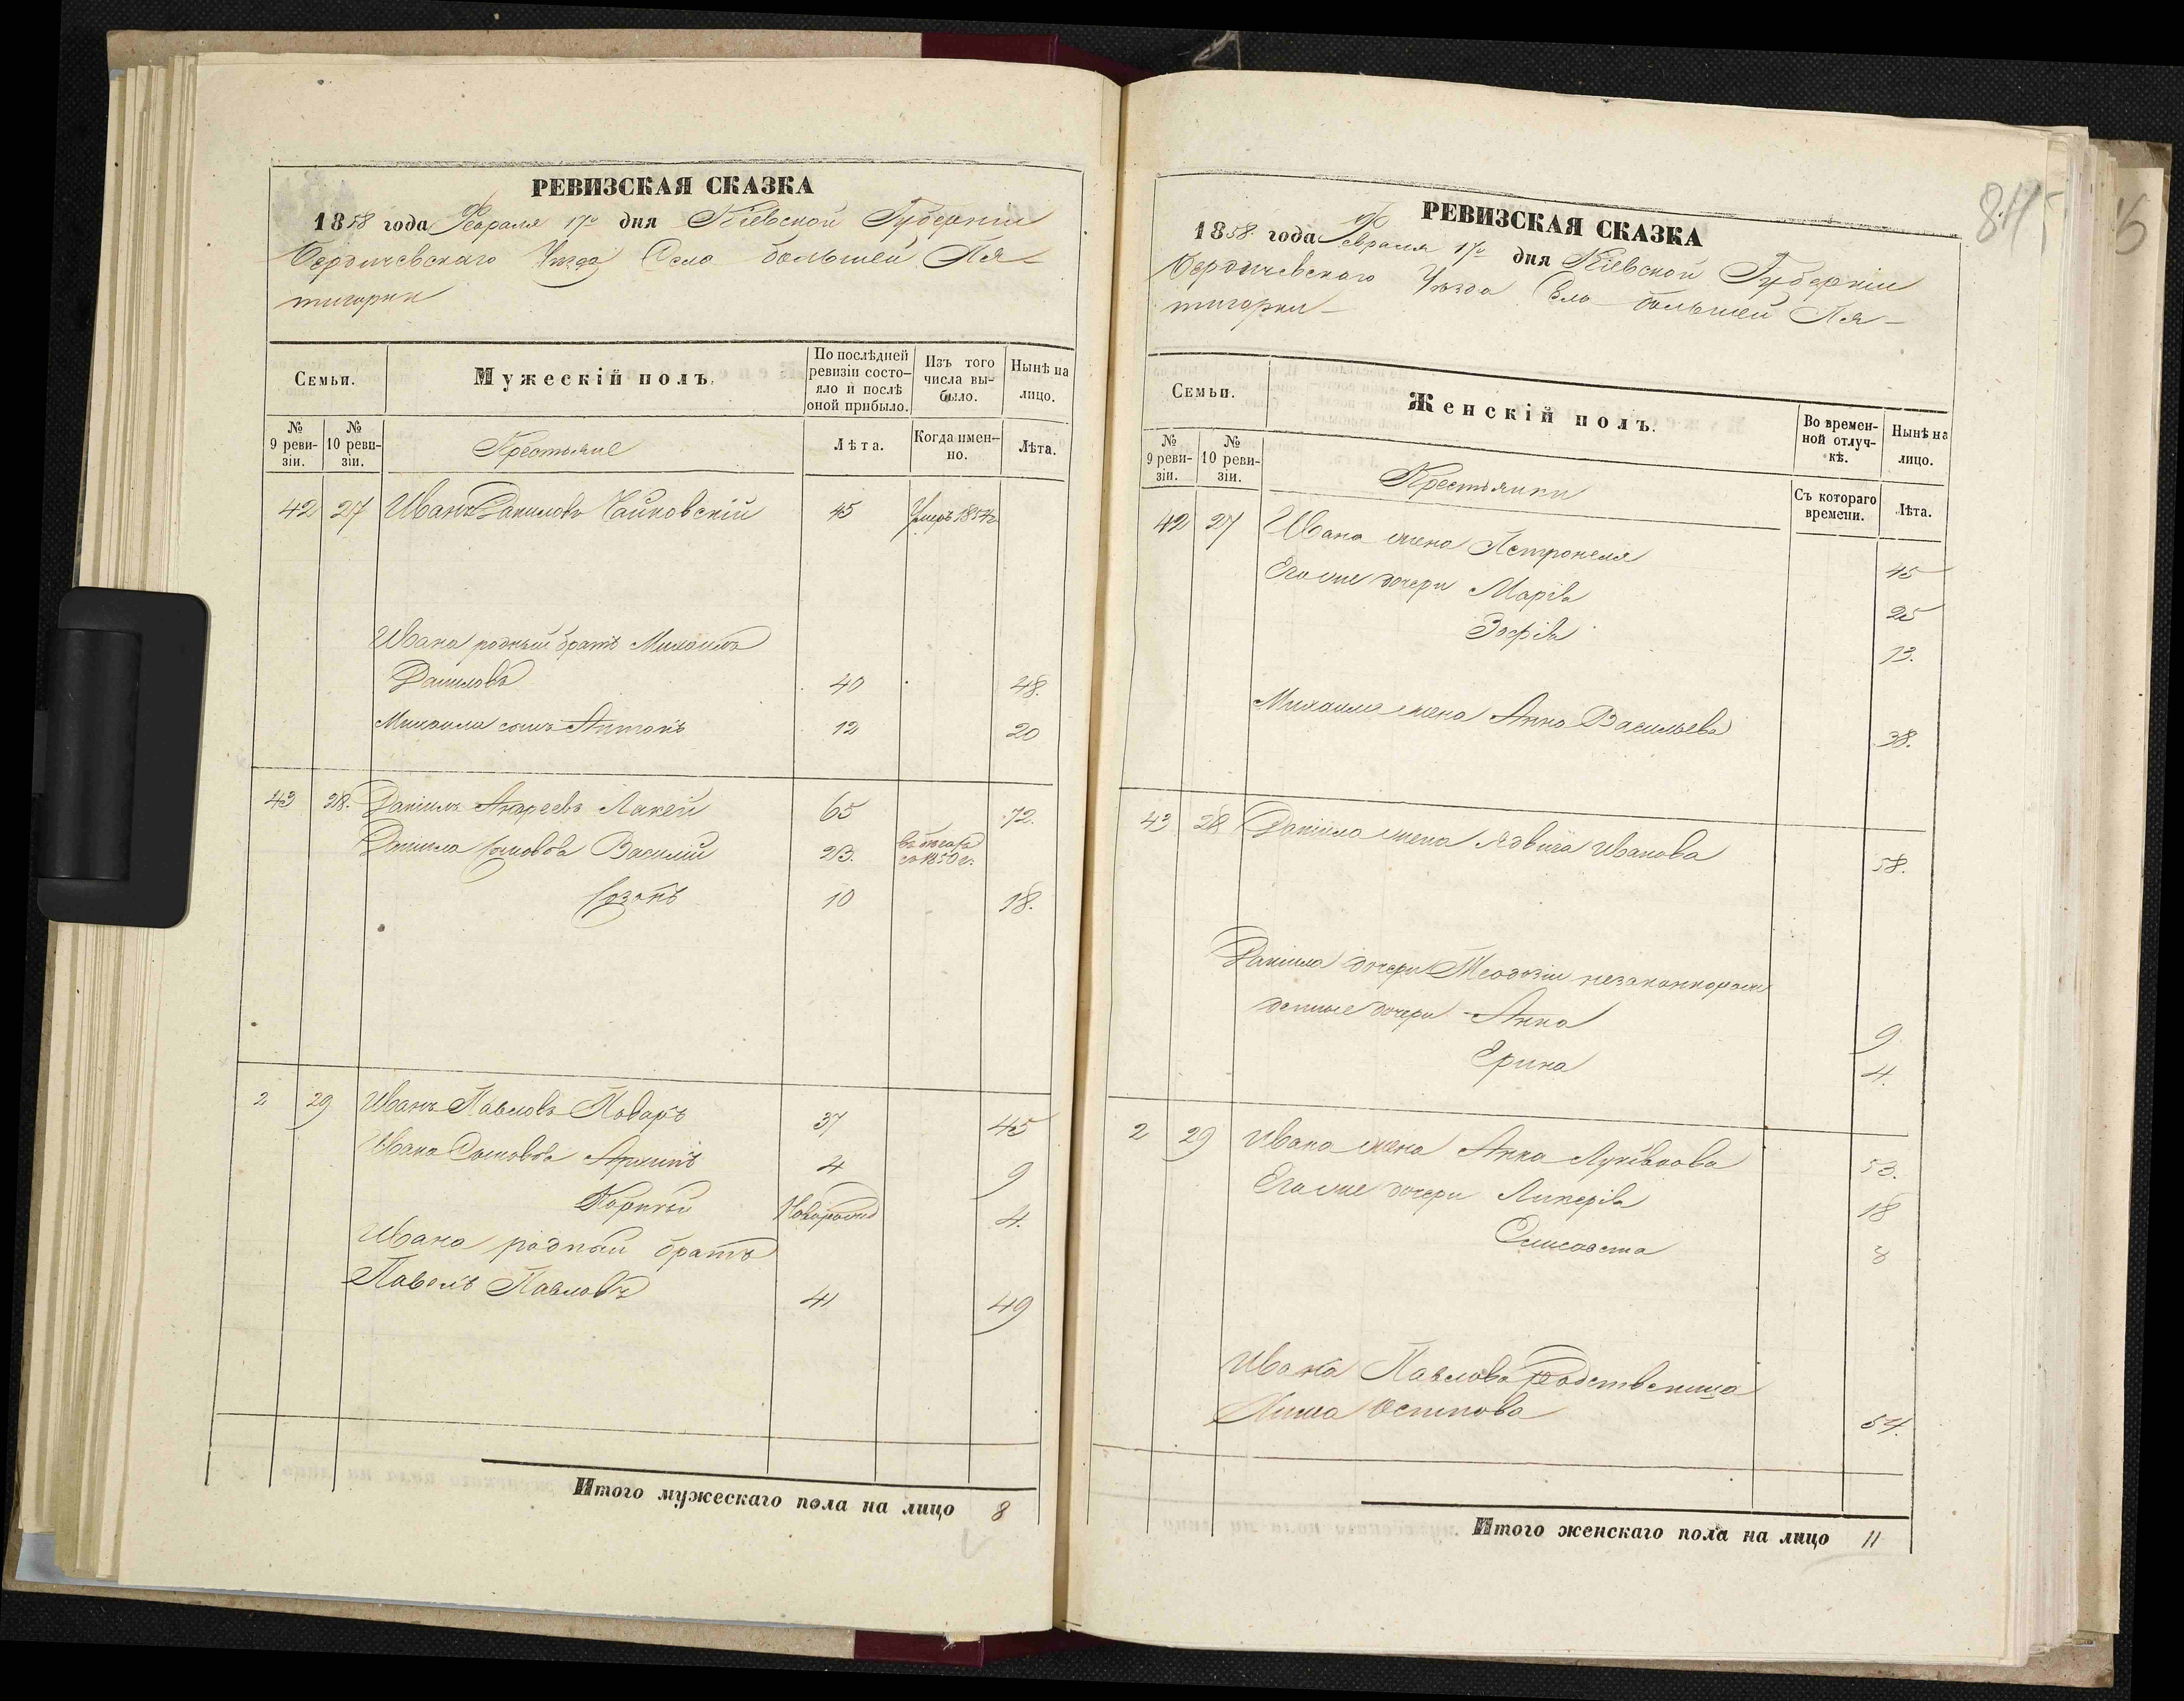 РЕВИЗСКАЯ СКАЗКА
1858 года Февраля 17го дня Кіевской Губерніи
Бердичевскаго Уѣзда Села большей Пя-
тигорки
Семьи.
Мужескій полъ.
По послѣдней ревизіи состо-яло и послѣ оной прибыло.
Изъ того числа вы-было.
Нынѣ на лицо.
№ 9 реви-зіи.
№ 10 реви-зіи.
Крестьяне
Лѣта.
Когда имен-но.
Лѣта.
42 27 Иванъ Даниловъ Чайковскій 45 Умеръ 1854г
Ивана родный братъ Михаилъ
Даниловъ 40 48.
Михаила сынъ Антонъ 12 20
43 28. Даніилъ Андреевъ Лакей 65 72.
Даніила сыновья Василій 23. въ бѣгахъ
съ 1850 г.
Іозэпъ 10 18.
2 29 Иванъ Павловъ Поваръ 37 45
Ивана Сыновья Архипъ 4 9
Корнѣй Новорожд 4.
Ивана родный братъ
Павелъ Павловъ 41 49
Итого мужескаго пола на лицо 8
84
РЕВИЗСКАЯ СКАЗКА
1858. года Февраля 17го дня Кіевской Губерніи
Бердичевскаго Уѣзда Села большей Пя-
тигорки
Семьи.
Женскій полъ.
Во времен-ной отлуч-кѣ.
Нынѣ на лицо.
№ 9 реви-зіи.
№ 10 реви-зіи.
Крестьянки
Съ котораго времени.
Лѣта.
42 27 Ивана жена Петронеля 45
Его же дочери Марія 25
Зофія 13.
Михаила жена Анна Васильева 38.
43 28 Даніила жена Ядвига Иванова 58.
Даніила дочери Теодозіи незаконнорож
денные дочери Анна 9
Ерина 4.
2 29 Ивана жена Анна Лукіянова 53.
Его же дочери Ликерія 18
Елисавета 8
Ивана Павлова Родственица
Осипова 54.
Итого женскаго пола на лицо 11